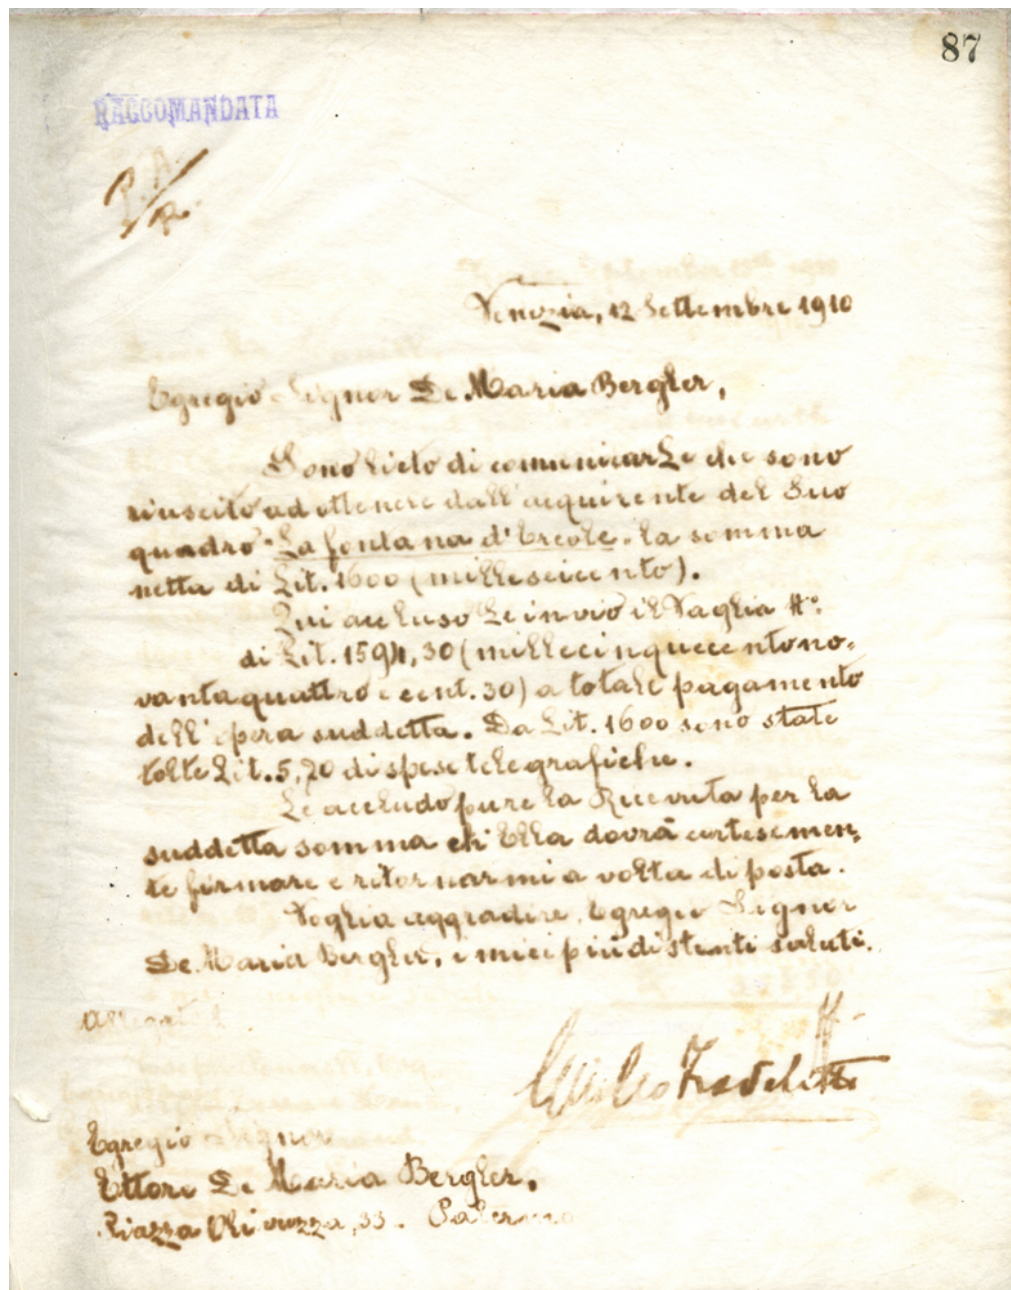 87
RACCOMANDATA
P.A
R.
Venezia, 12 Settembre 1910
Egregio Signor De Maria Bergler,
Sono lieto di comunicarLe che sono
riuscito ad ottenere dall'acquirente del Suo
quadro "La fontana d'Ercole" la somma
netta di Lit. 1600 (milleseicento).
Qui accluso Le invio il Vaglia No.
di Lit. 1594,30 (millecinquecentono-
vantaquattro e cent. 30) a totale pagamento
dell'opera suddetta. Da Lit. 1600 sono state
tolte Lit. 5,70 di spese telegrafiche.
Le accludo pure la Ricevuta per la
suddetta somma ch'Ella dovrà cortesemen-
te firmare e ritornarmi a volta di posta.
Voglia aggradire, Egregio Signor
De Maria Bergler, i miei più distinti saluti.
Allegati
Fradeletto
Egregio Signor
Ettore De Maria Bergler,
Piazza Olivuzza, 33. Palermo